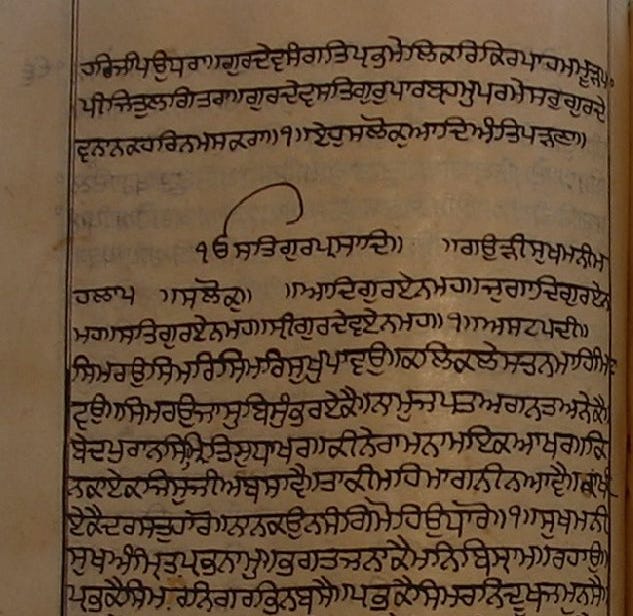 ਹਰਿਜਪਿਉਧਰਾ॥ਗੁਰਦੇਵਸੰਗਤਿਪ੍ਰਭਮੇਲਿਕਰਿਕਿਰਪਾਹਮਮੂੜਪਾ
ਪੀਜਿਤੁਲਗਿਤਰਾ॥ਗੁਰਦੇਵਸਤਿਗੁਰੁਪਾਰਬ੍ਰਹਮੁਪਰਮੇਸਰੁਗੁਰਦੇ
ਵਨਾਨਕਹਰਿਨਮਸਕਰਾ॥੧॥ਏਹੁਸਲੋਕੁਆਦਿਅੰਤਿਪੜਣਾ॥
ੴਸਤਿਗੁਰਪ੍ਰਸਾਦਿ॥ ॥ਗਉੜੀਸੁਖਮਨੀਮ
ਹਲਾ੫ ॥ਸਲੋਕੁ॥ ॥ਆਦਿਗੁਰਏਨਮਹ॥ਜੁਗਾਦਿਗੁਰਏਨ
ਮਹ॥ਸਤਿਗੁਰਏਨਮਹ॥ਸ੍ਰੀਗੁਰਦੇਵਏਨਮਹ॥੧॥ਅਸਟਪਦੀ॥
ਸਿਮਰਉਸਿਮਰਿਸਿਮਰਿਸੁਖੁਪਾਵਉ॥ਕਲਿਕਲੇਸਤਨਮਾਹਿਮਿਟਾ
ਵਉ॥ਸਿਮਰਉਜਾਸੁਬਿਸੁੰਭਰਏਕੈ॥ਨਾਮੁਜਪਤਅਗਨਤਅਨੇਕੈ
ਬੇਦਪੁਰਾਨਸਿੰਮ੍ਰਿਤਿਸੁਧਾਖ੍ਯਰ॥ਕੀਨੇਰਾਮਨਾਮਇਕਆਖ੍ਯਰ॥ਕਿ
ਨਕਾਏਕਜਿਸੁਜੀਅਬਸਾਵੈ॥ਤਾਕੀਮਹਿਮਾਗਨੀਨਆਵੈ॥ਕਾਂਖੀ
ਏਕੈਦਰਸਤੁਹਾਰੋ॥ਨਾਨਕਉਨਸੰਗਿਮੋਹਿਉਧਾਰੋ॥੧॥ਸੁਖਮਨੀ
ਸੁਖਅੰਮ੍ਰਿਤਪ੍ਰਭਨਾਮੁ॥ਭਗਤਜਨਾਕੈਮਨਿਬਿਸ੍ਰਾਮ॥ਰਹਾਉ॥
ਪ੍ਰਭਕੈਸਿਮਰਨਿਗਰਭਿਨਬਸੈ॥ਪ੍ਰਭਕੈਸਿਮਰਨਿਦੂਖੁਜਮੁਨਸੈ॥